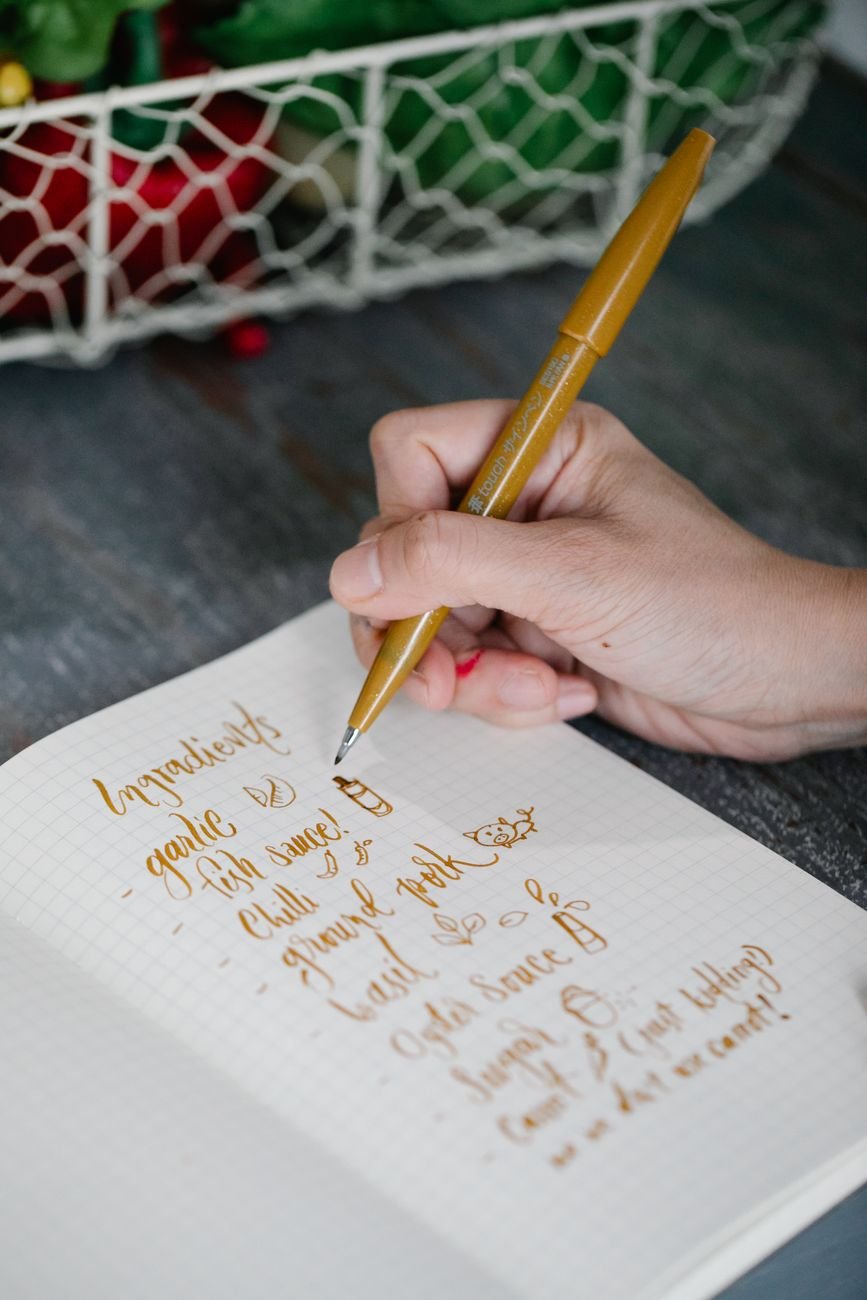 touch サインペン
Ingradients
- garlic
- fish sauce!
- chilli
- ground pork
- basil
- Oyster Souce
- Sugar
- Carrot (just kidding!)
no we don't use carrot!